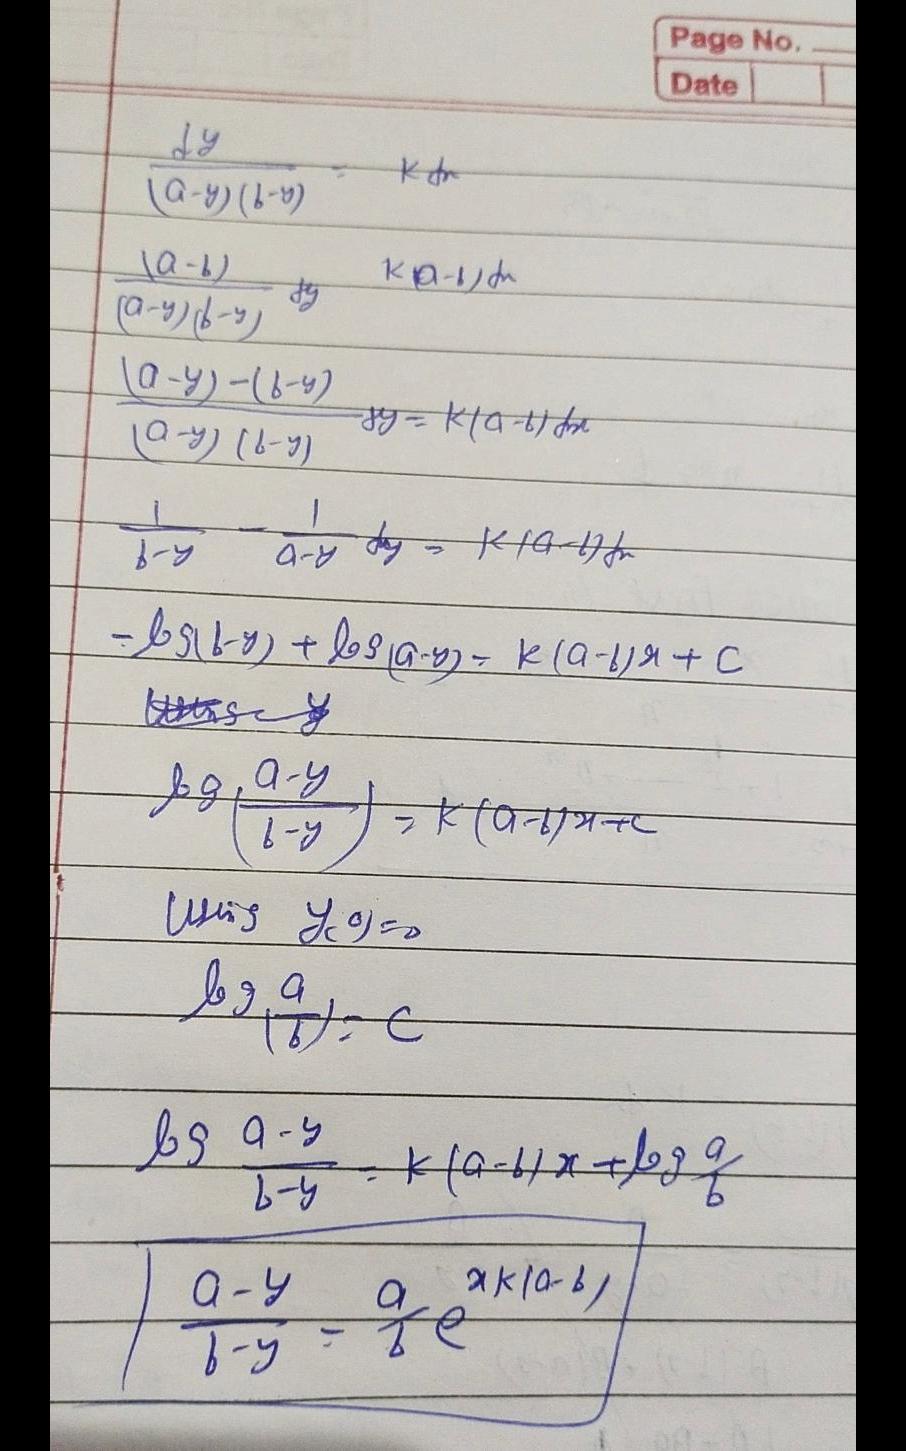 Page No.
Date
dy/((a-y)(b-y)) = k dx
(a-b)/((a-y)(b-y)) dy k(a-b) dx
((a-y)-(b-y))/((a-y)(b-y)) dy = k(a-b) dx
1/(b-y) - 1/(a-y) dy = k(a-b) dx
-log(b-y) + log(a-y) = k(a-b)x + C
log((a-y)/(b-y)) = k(a-b)x+c
Using y(0)=0
log(a/b) = C
log (a-y)/(b-y) = k(a-b)x + log a/b
(a-y)/(b-y) = a/b e^(xk(a-b))